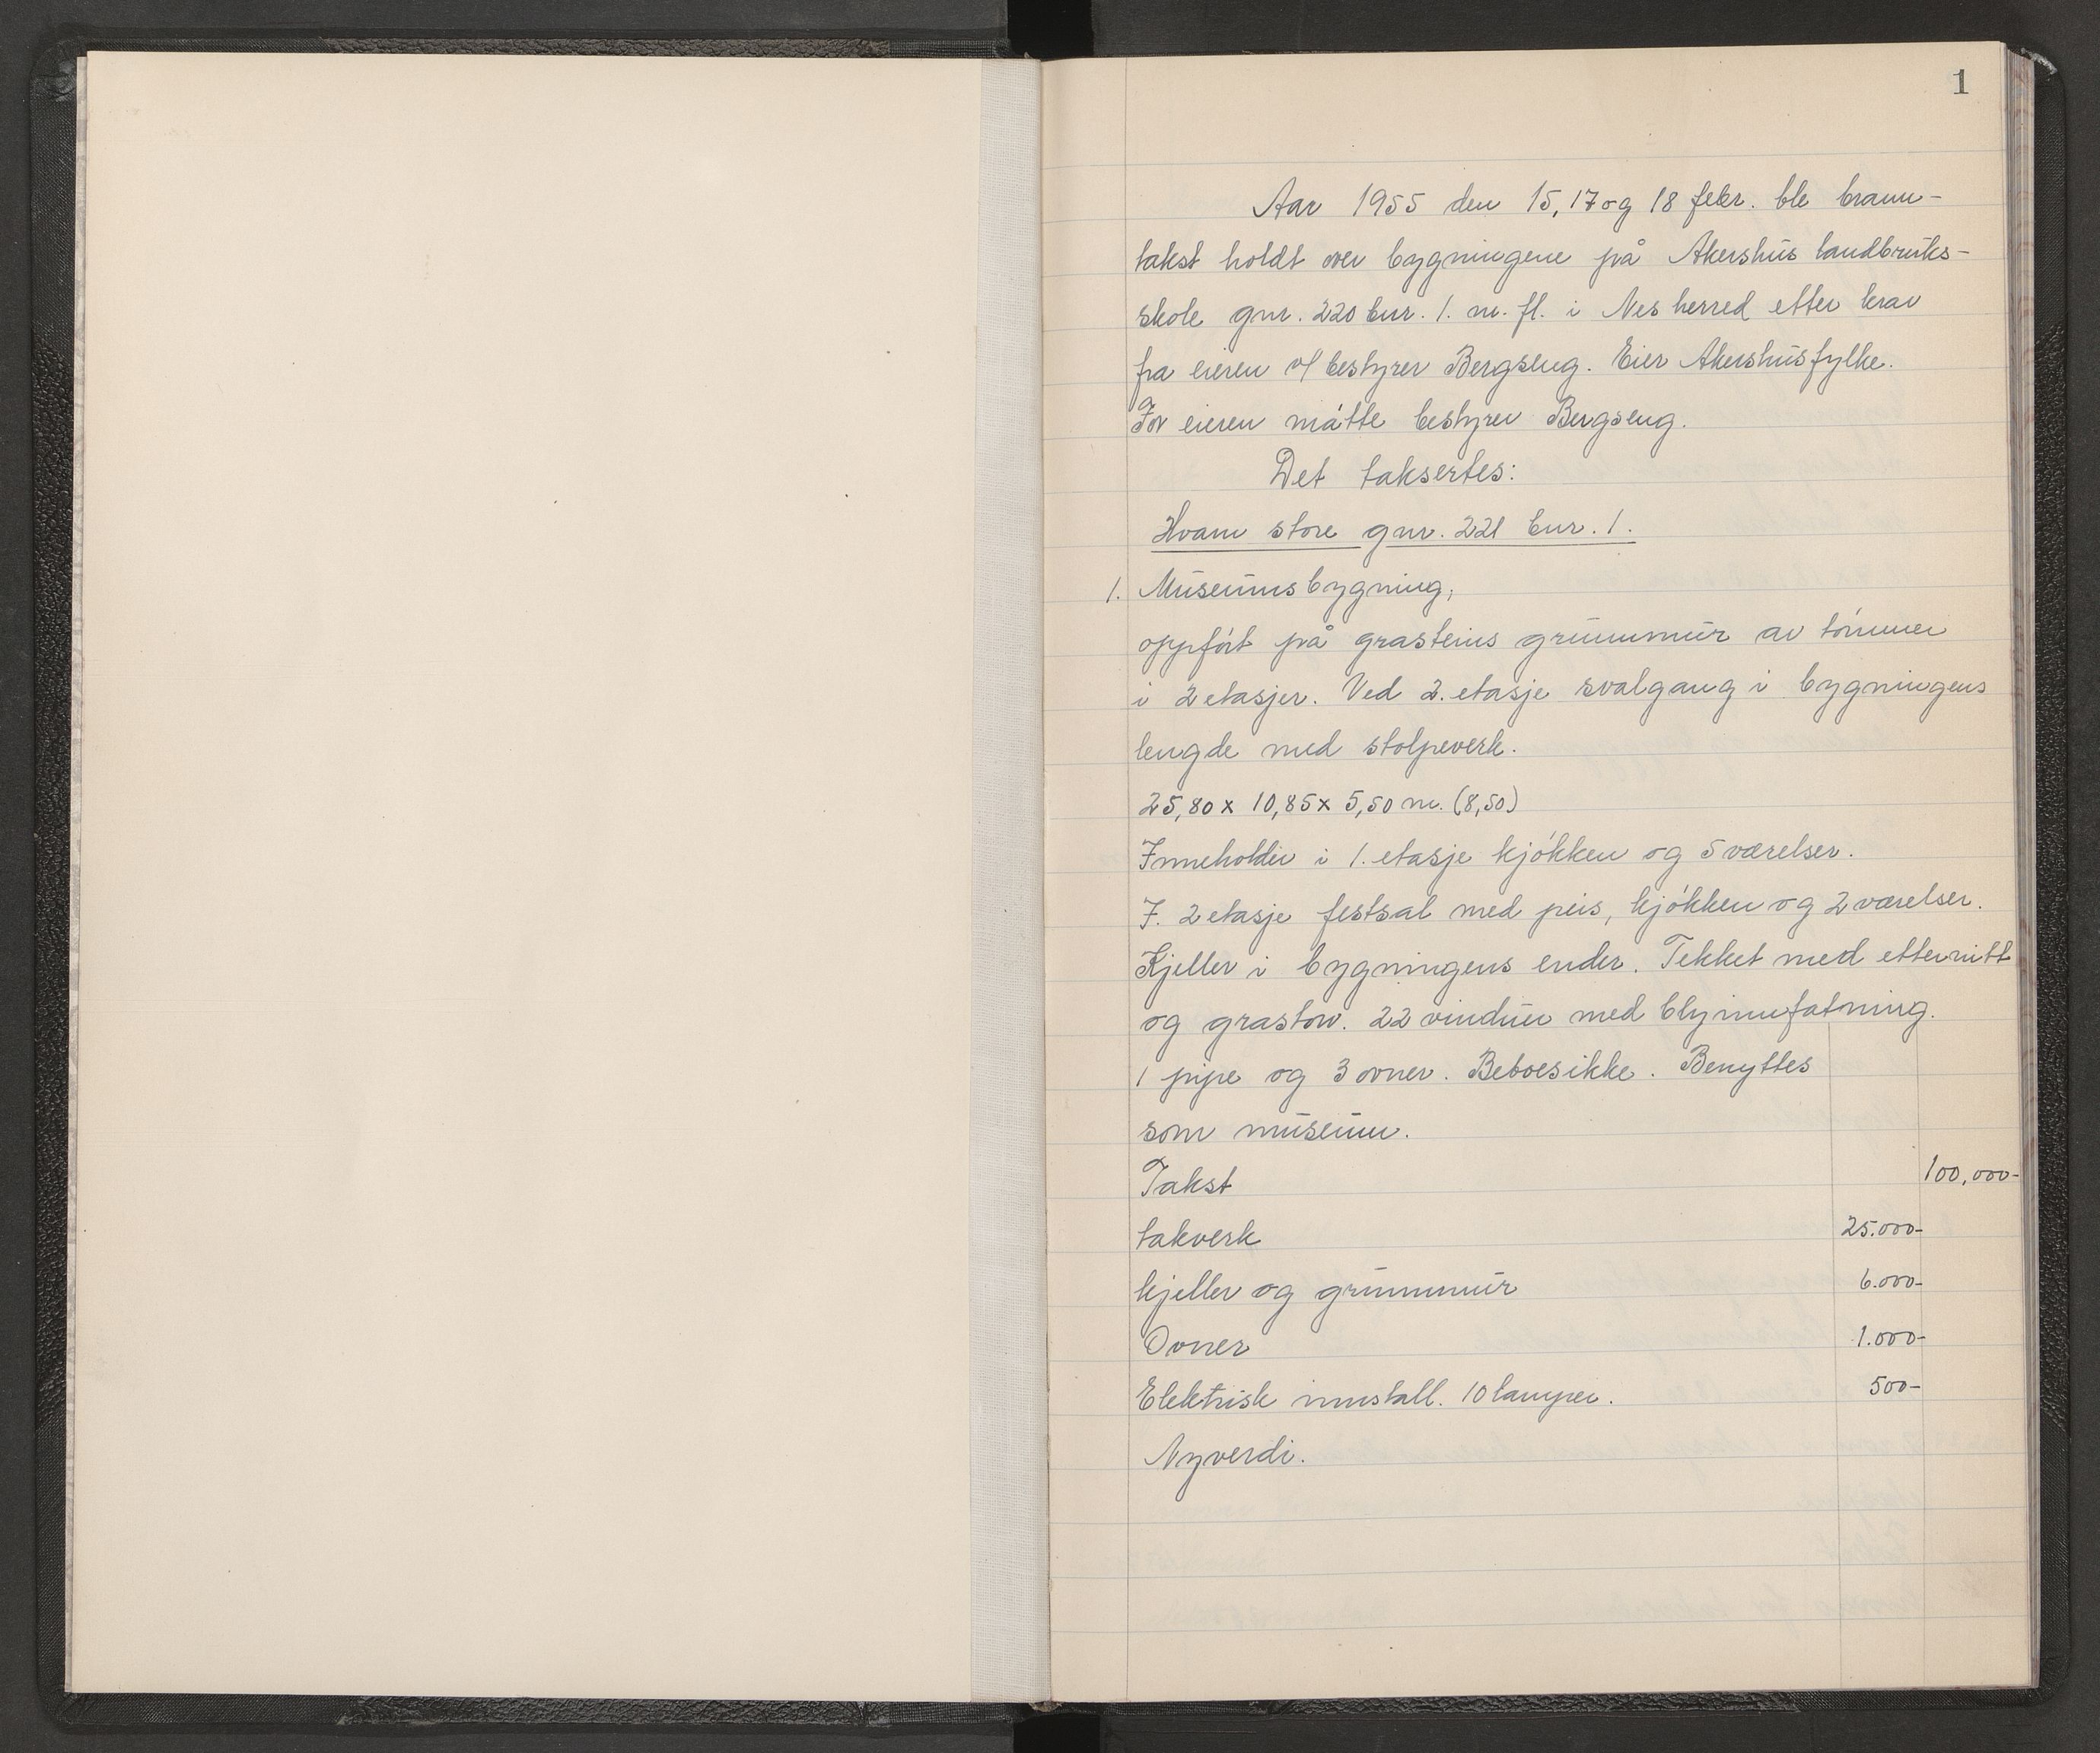 1
Aar 1955 den 15, 17 og 18 febr. ble brann-
takst holdt over bygningene på Akershus landbruks-
skole gnr. 220 bnr. 1. m. fl. i Nes herred etter krav
fra eieren v/ bestyrer Bergseng. Eier Akershus fylke.
For eieren møtte bestyrer Bergseng.
Det taksertes:
Hvam store gnr. 221 bnr. 1.
1. Museumsbygning,
oppført på grasteins grunnmur av tømmer
i 2 etasjer. Ved 2. etasje svalgang i bygningens
lengde med stolpeverk.
25,80 x 10,85 x 5,50 m. (8,50)
Inneholder i 1. etasje kjøkken og 5 værelser.
I. 2 etasje festsal med peis, kjøkken og 2 værelser.
Kjeller i bygningens ender. Tekket med etternitt
og grastorv. 22 vinduer med blyinnfatning.
1 pipe og 3 ovner. Beboes ikke. Benyttes
som museum.
Takst 100,000-
takverk 25.000-
kjeller og grunnmur 6.000-
Ovner 1.000-
Elektrisk innstall. 10 lamper. 500-
Nyverdi.